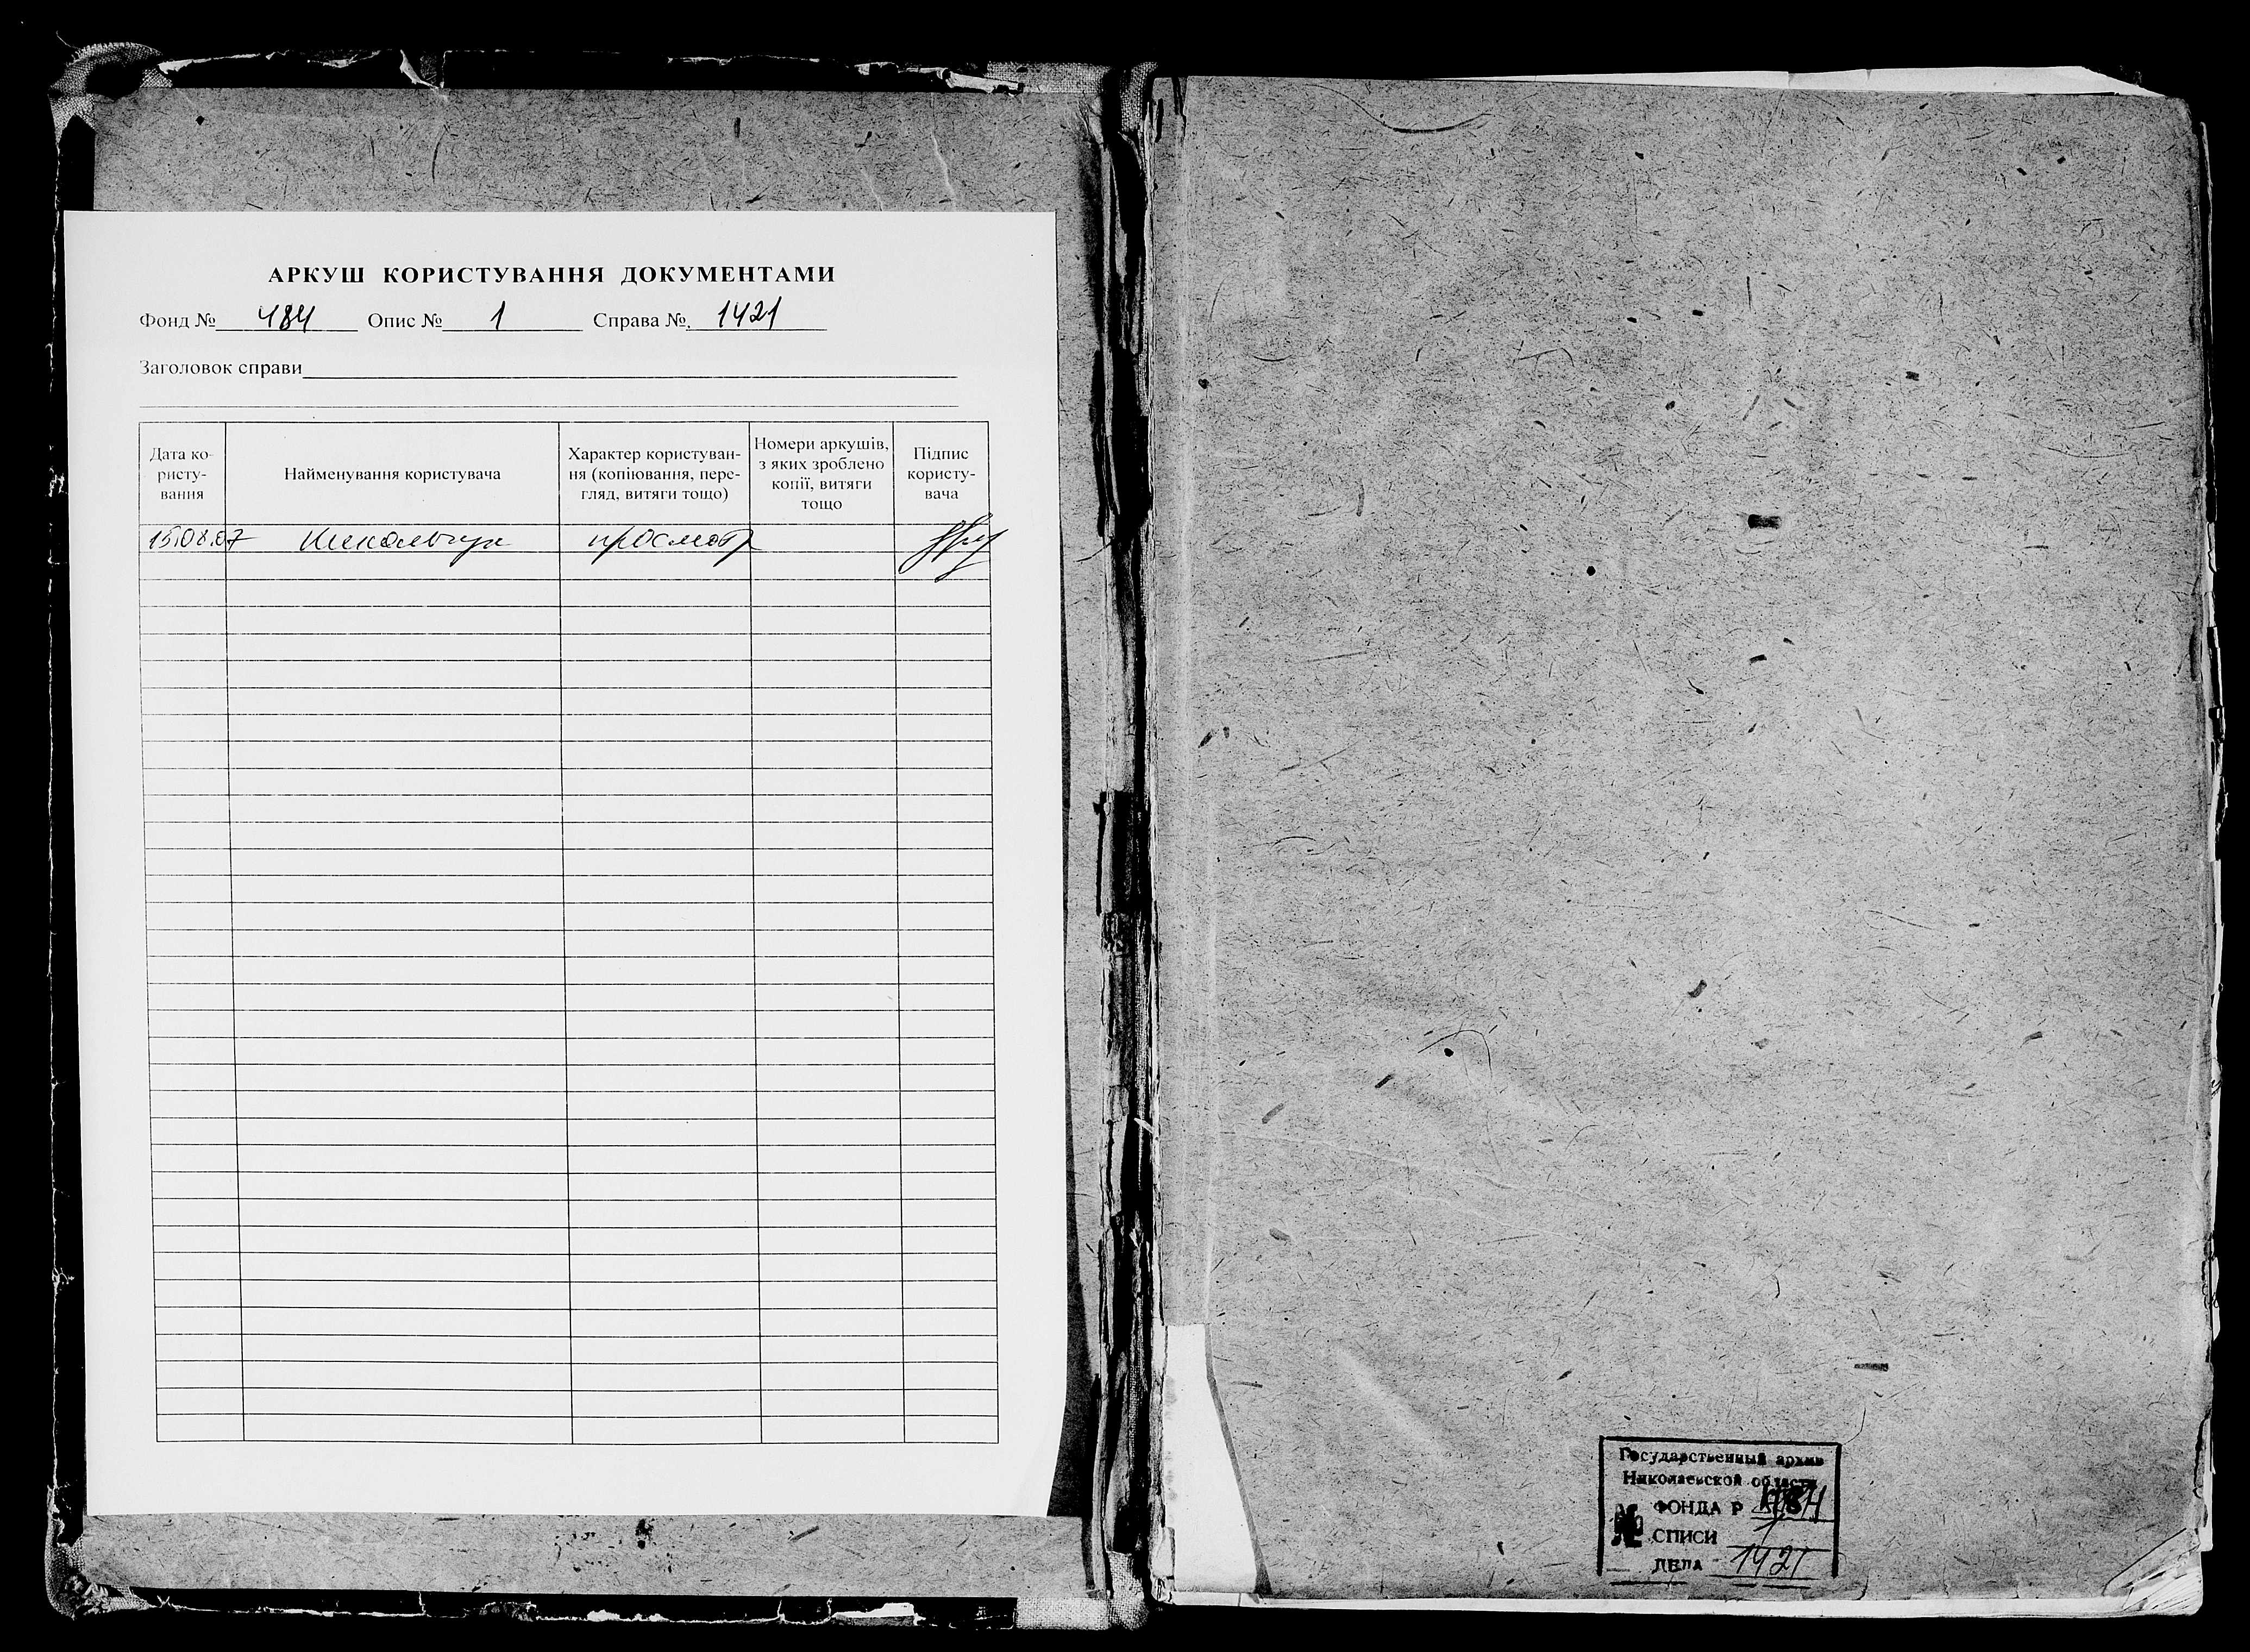 АРКУШ КОРИСТУВАННЯ ДОКУМЕНТАМИ
Фонд № 484 Опис № 1 Справа № 1421
Заголовок справи
Дата ко-
ристу-
вання
Найменування користувача
Характер користуван-
ня (копіювання, пере-
гляд, витяги тощо)
Номери аркушів,
з яких зроблено
копії, витяги
тощо
Підпис
користу-
вача
15.08.07 просмотр
Государственный архив
Николаевской области
№
ФОНДА Р 484
ОПИСИ 1
ДЕЛА 1421